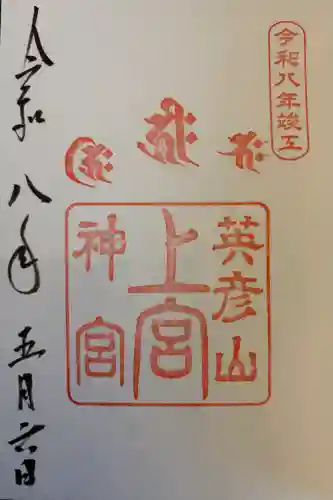 令和八年竣工
英彦山
上宮
神宮
令和八年五月六日